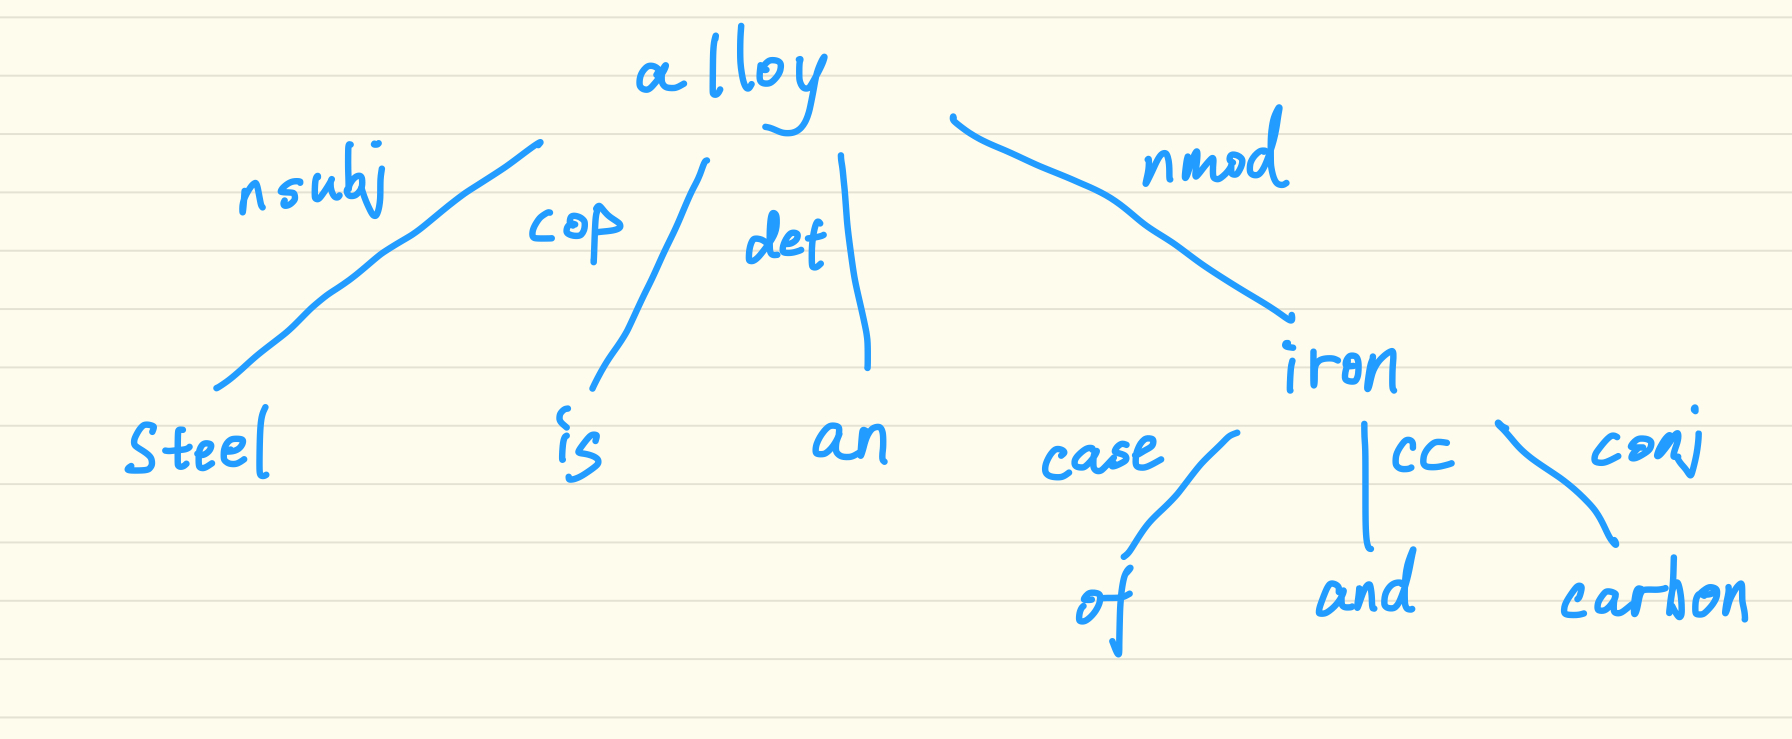 alloy
nsubj cop det nmod
iron
Steel is an case cc conj
of and carbon